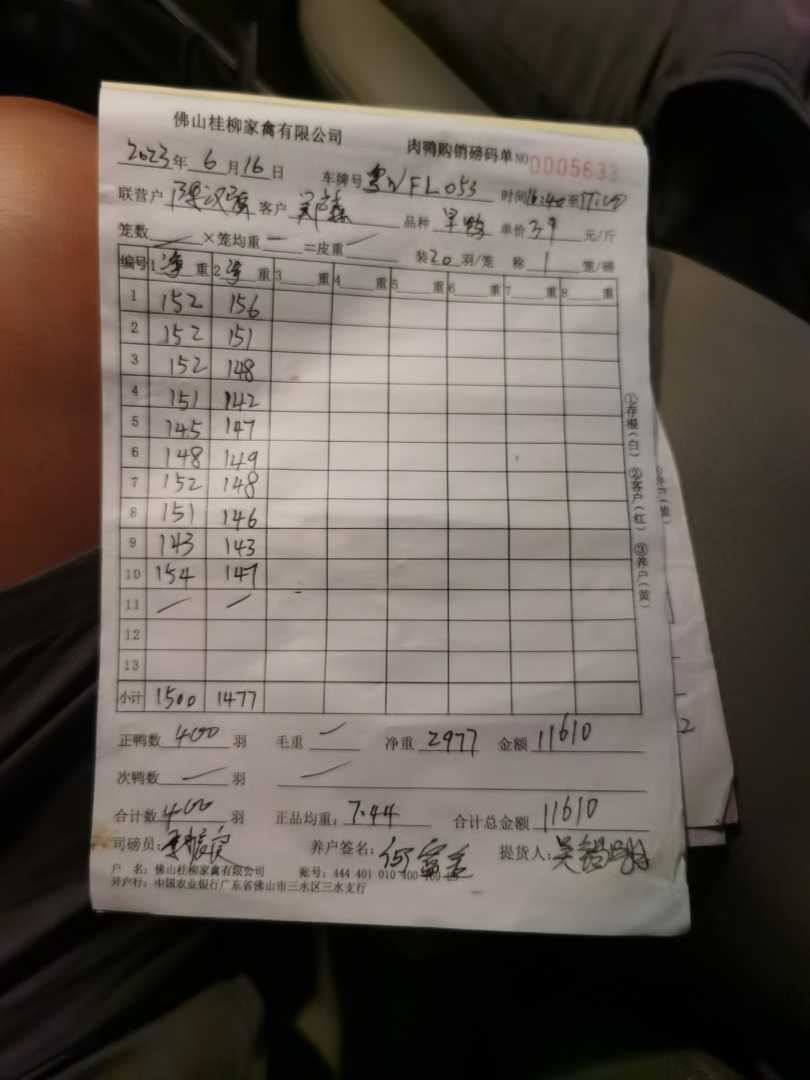 佛山桂柳家禽有限公司 肉鸭购销磅码单 NO 0005633
2023年6月16日 车牌号 粤WFL053 时间 至
联营户 客户 品种 旱鸭 单价 3.9 元/斤
笼数 — ×笼均重 — =皮重 — 装20羽/笼 称1笼/磅
编号 1净重 2净重 3重 4重 5重 6重 7重 8重
1 152 156
2 152 151
3 152 148
4 151 142
5 145 147
6 148 149
7 152 148
8 151 146
9 143 143
10 154 147
11 — —
12
13
小计 1500 1477
正鸭数 400 羽 毛重 — 净重 2977 金额 11610
次鸭数 — 羽 —
合计数 400 羽 正品均重: 7.44 合计总金额 11610
司磅员: 养户签名: 何富 提货人: 吴
户 名: 佛山桂柳家禽有限公司 账号: 444 401 010 400
开户行: 中国农业银行广东省佛山市三水区三水支行
①存根(白) ②客户(红) ③养户(黄)